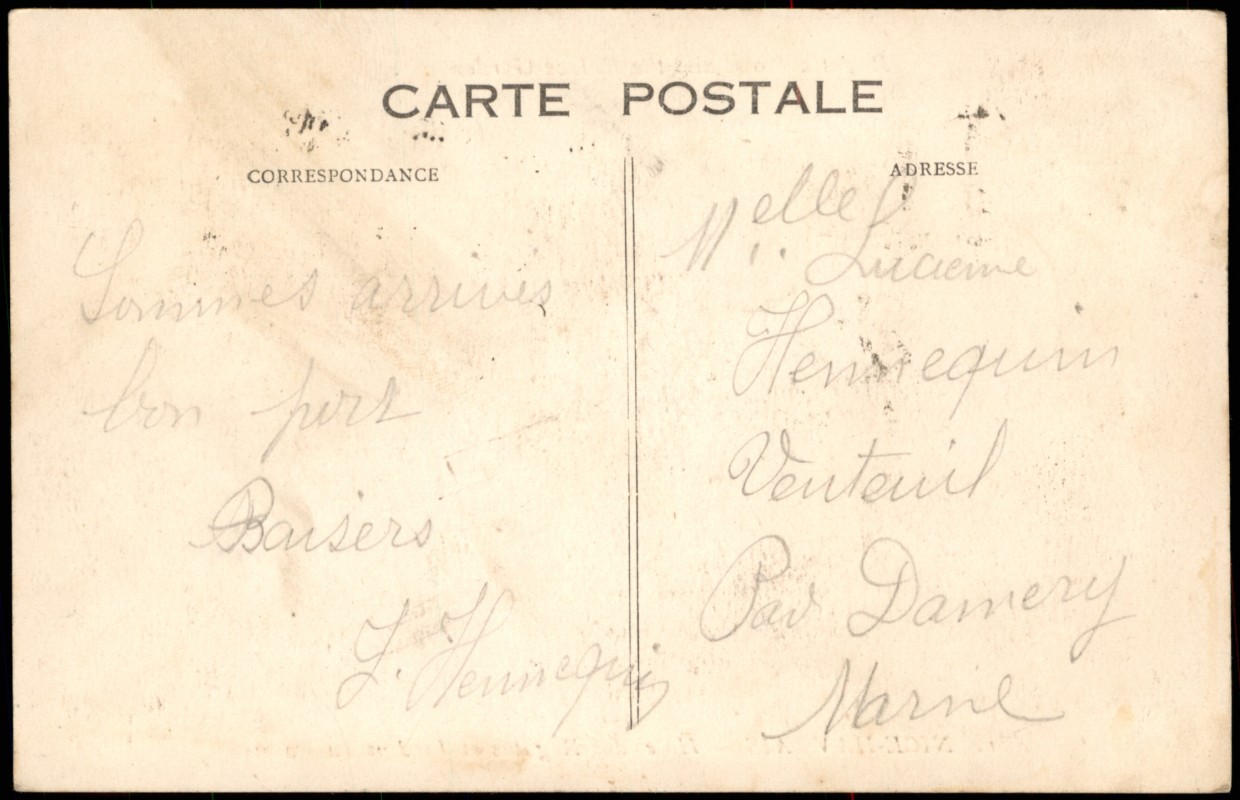 CARTE POSTALE
CORRESPONDANCE
Sommes arrivés
bon port
Baisers
L. Hennequin
ADRESSE
Melle Lucienne
Hennequin
Venteuil
Par Damery
Marne